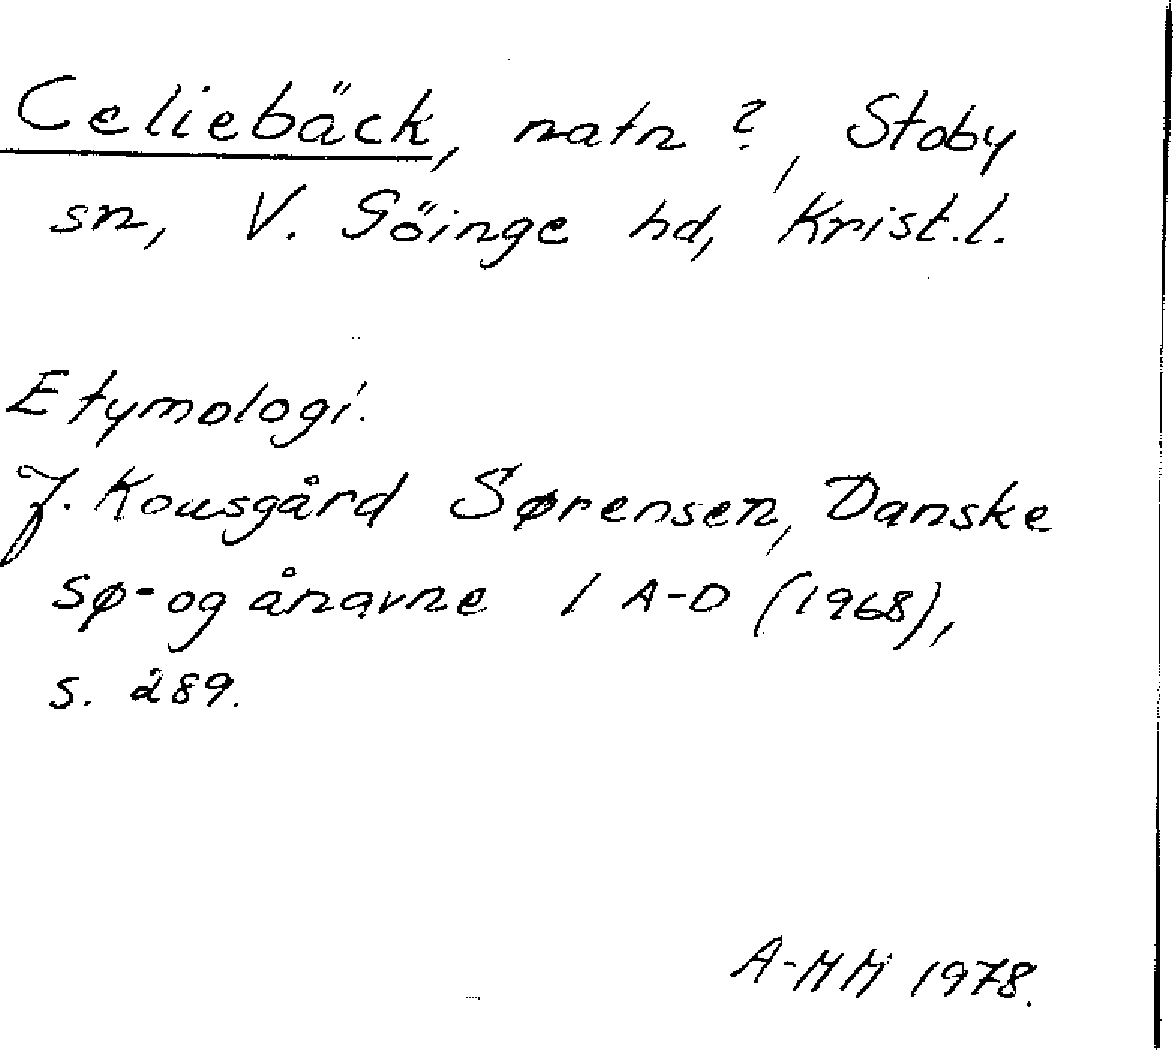 Celiebäck, natn ?, Stoby
sn, V. Göinge hd, Krist.l.
Etymologi.
J. Kousgård Sørensen, Danske
sø- og ånavne 1 A-D (1968),
s. 289.
A-MM 1978.